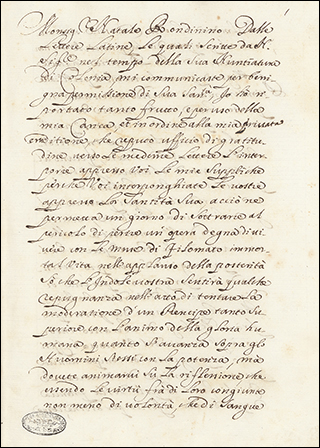 Monsig. Natale Rondinino. Dalle
Lettere Latine le quali scritte da N.
Sig. nel tempo della Sua Nuntiatura
di Colonia, mi communicaste per beni
gna permissione di Sua San. Io hò ri
portato tanto frutto, e per uso della
mia Carica et in ordine alla mia privata
eruditione, che reputo ufficio di gratitu
dine verso le medeme Lettere l'inter
porre appresso Voi le mie suppliche
perche Voi interponghiate le vostre
appresso la Santità Sua, acciò ne
permetta un giorno di sottrarle al
pericolo di perire un opera degna di vi
vere con le Muse di Filomato immor
tal Vita nell'applauso della posterità
Sò che l'Indole vostra sentirà qualche
repugnanza nell'atto di tentare la
moderatione d'un Prencipe tanto su
periore con l'animo della gloria hu
mana, quanto s'avanza sopra gli
Huomini stessi con la potenza, ma
dovete animarvi su la riflessione che
essendo le virtù frà di loro congiunte
non meno di volontà che di sangue